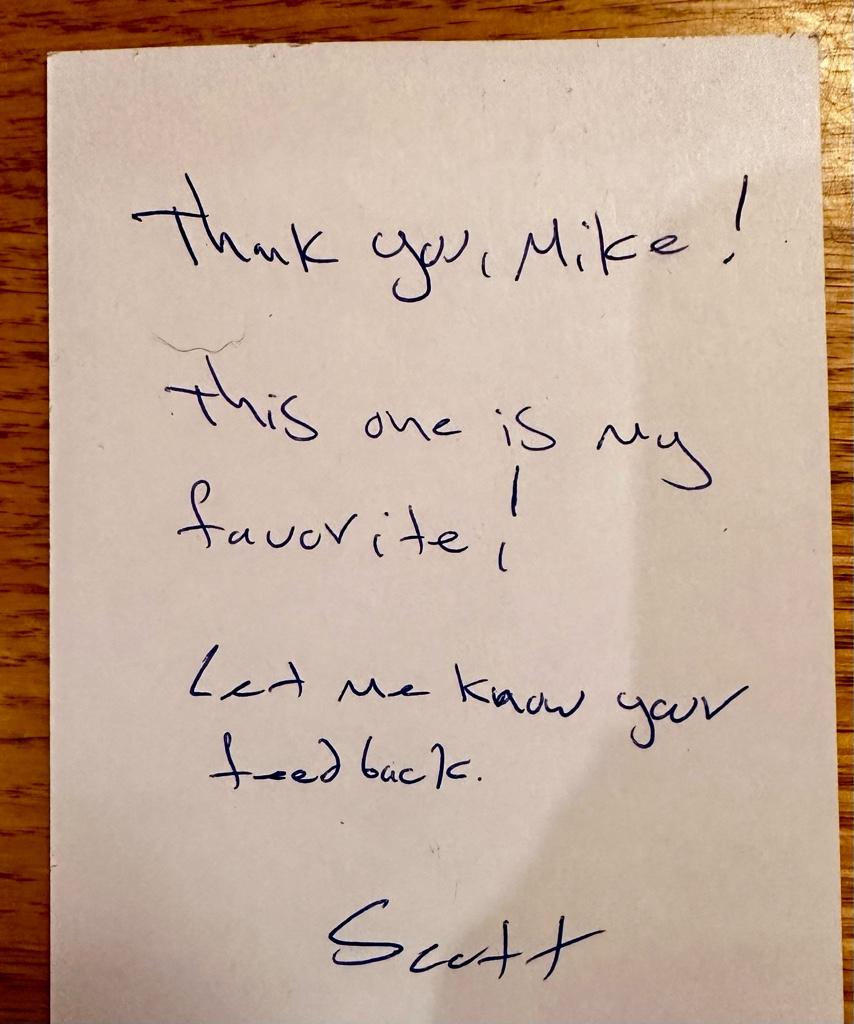 Thank you, Mike!
This one is my
favorite!
Let me know your
feedback.
Scott